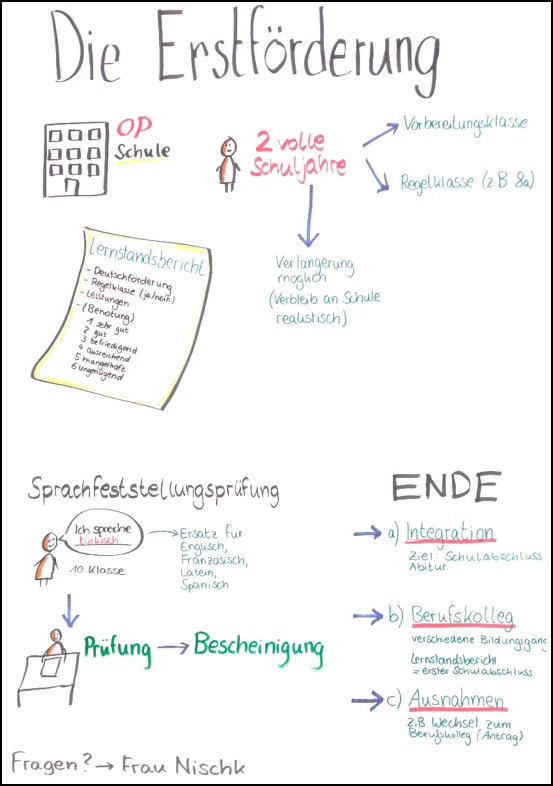 Die Erstförderung
OP
Schule
2 volle
Schuljahre
Vorbereitungsklasse
Regelklasse (z.B 8a)
Verlängerung
möglich
(Verbleib an Schule
realistisch)
Lernstandsbericht
- Deutschförderung
- Regelklasse (ja/nein)
- Leistungen
- (Benotung)
1 sehr gut
2 gut
3 befriedigend
4 ausreichend
5 mangelhaft
6 ungenügend
Sprachfeststellungsprüfung
Ich spreche
türkisch
10. Klasse
Ersatz für
Englisch,
Französisch,
Latein,
Spanisch
Prüfung → Bescheinigung
ENDE
→ a) Integration
Ziel: Schulabschluss
Abitur
→ b) Berufskolleg
verschiedene Bildungsgäng
Lernstandsbericht
= erster Schulabschluss
→ c) Ausnahmen
z.B. Wechsel zum
Berufskolleg (Antrag)
Fragen? → Frau Nischk